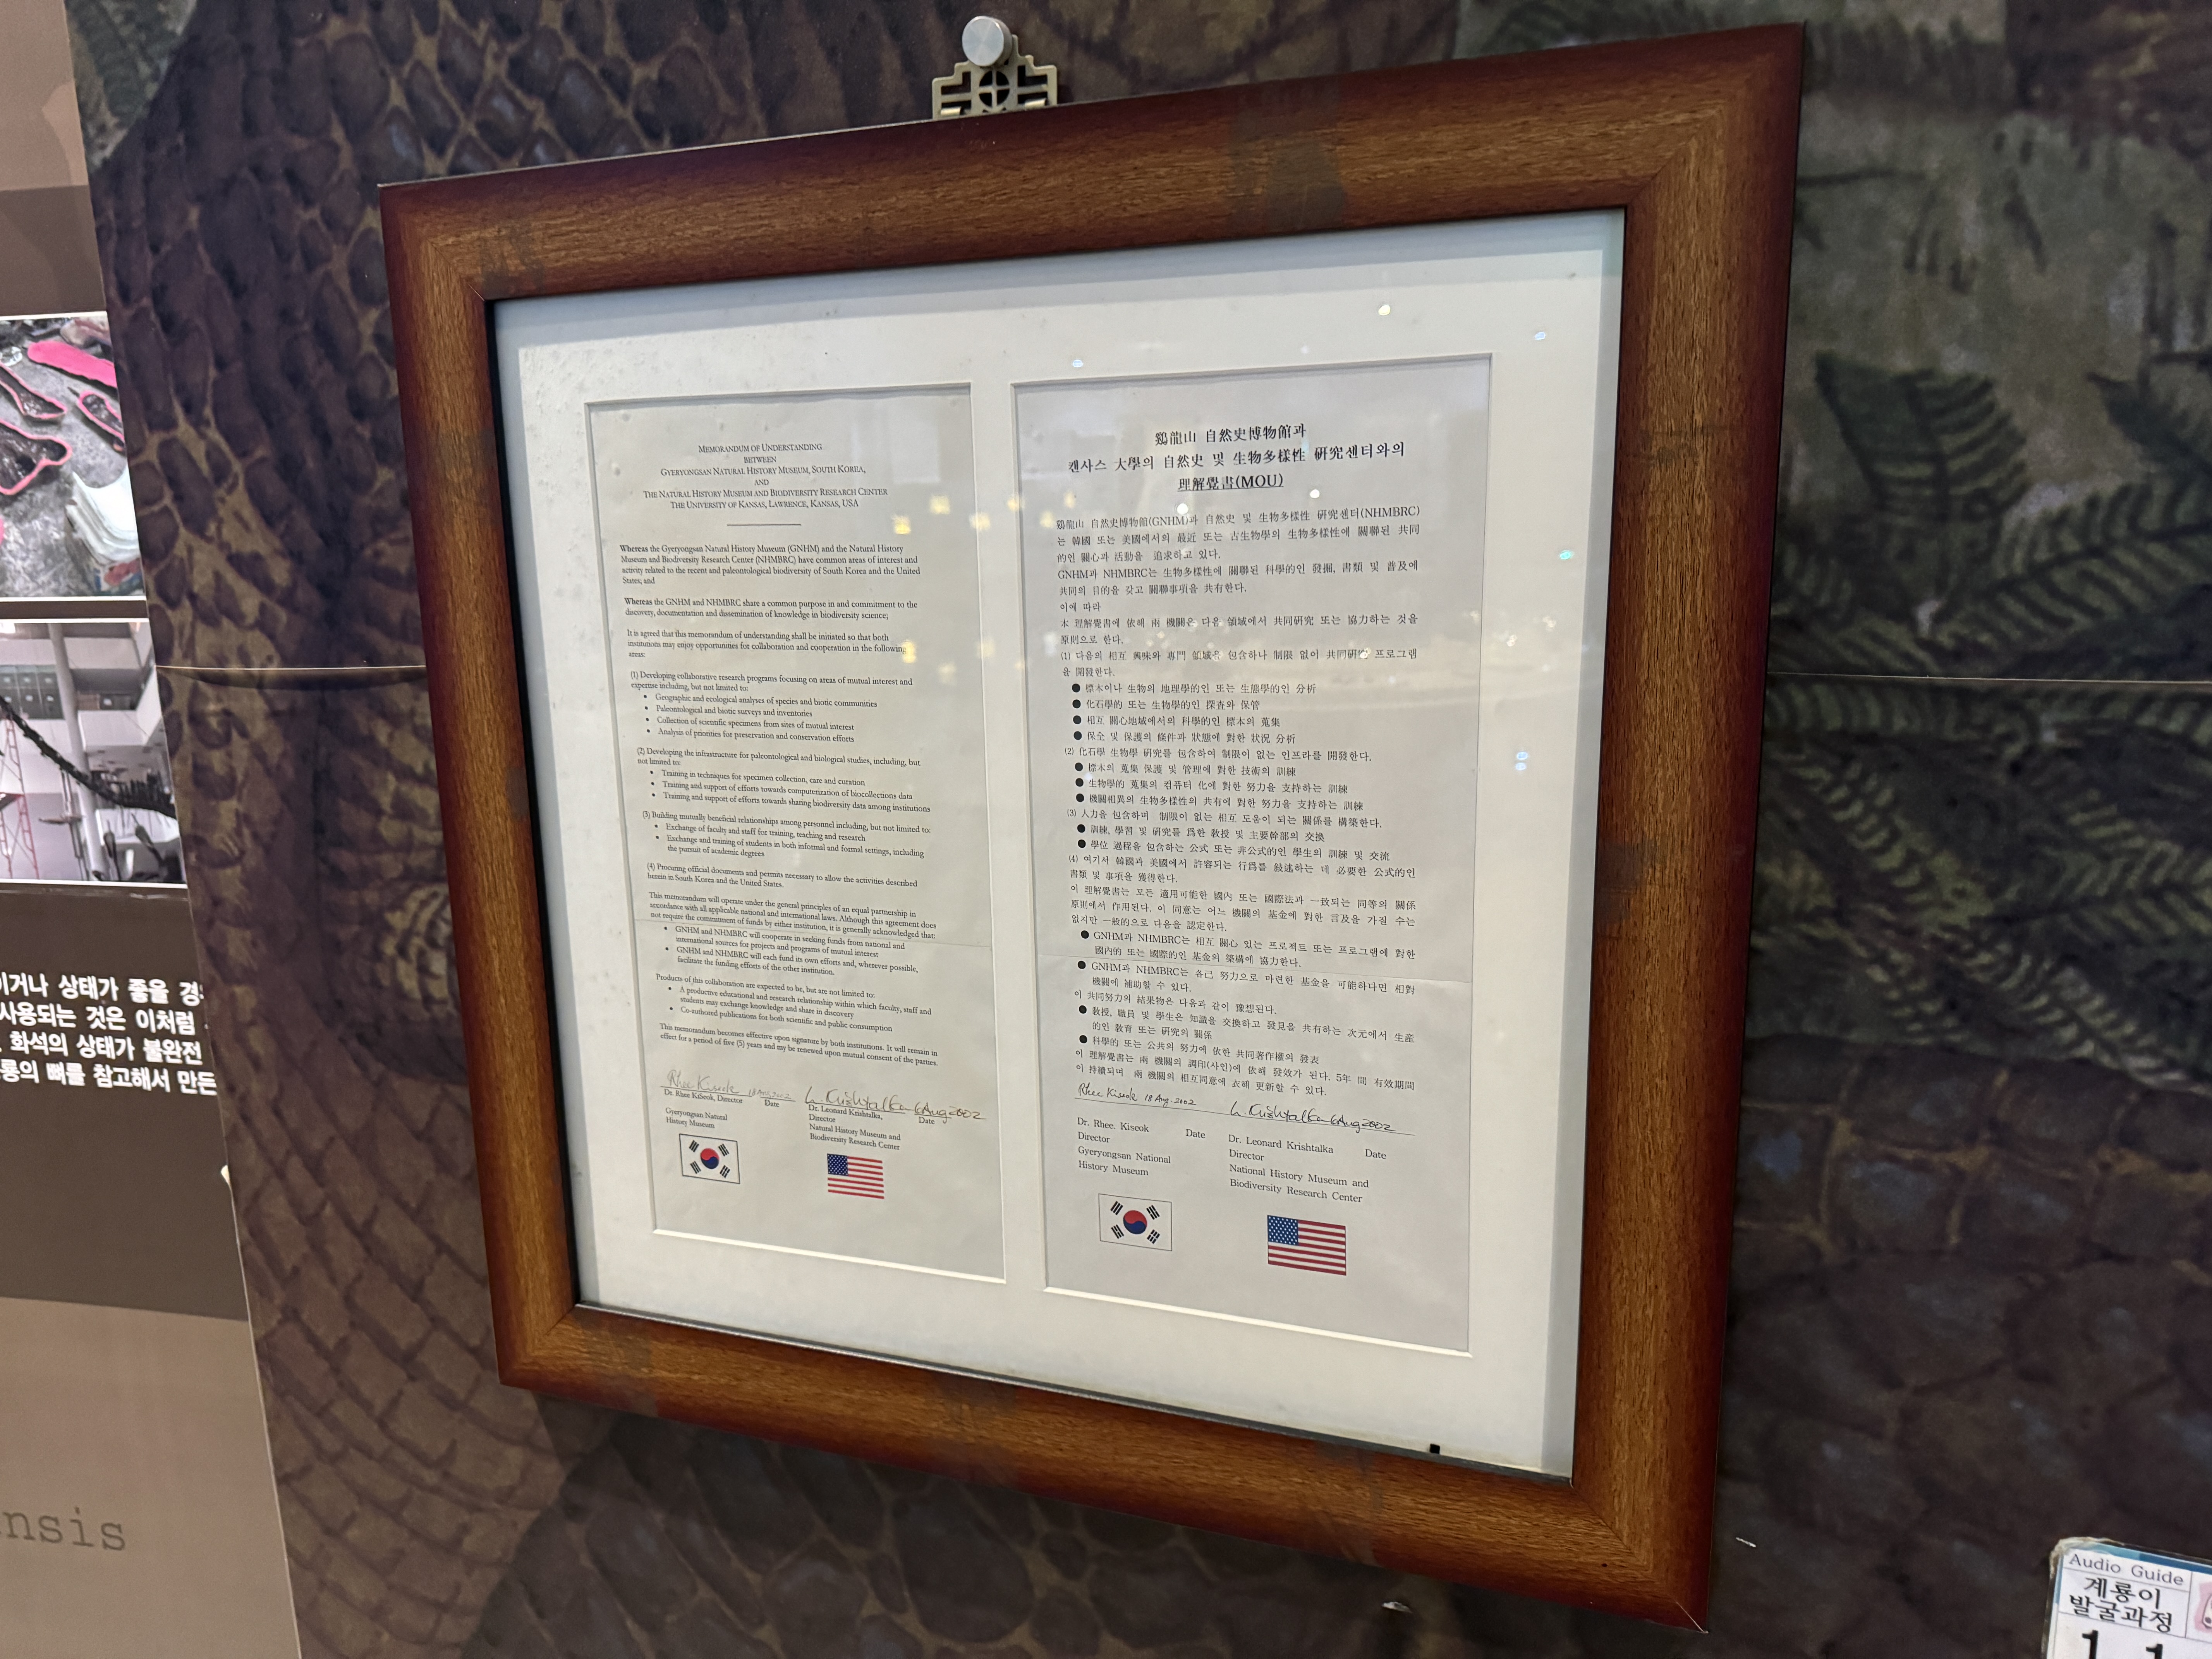 MEMORANDUM OF UNDERSTANDING
BETWEEN
GYERYONGSAN NATURAL HISTORY MUSEUM, SOUTH KOREA,
AND
THE NATURAL HISTORY MUSEUM AND BIODIVERSITY RESEARCH CENTER
THE UNIVERSITY OF KANSAS, LAWRENCE, KANSAS, USA
Whereas the Gyeryongsan Natural History Museum (GNHM) and the Natural History
Museum and Biodiversity Research Center (NHMBRC) have common areas of interest and
activity related to the recent and paleontological biodiversity of South Korea and the United
States; and
Whereas the GNHM and NHMBRC share a common purpose in and commitment to the
discovery, documentation and dissemination of knowledge in biodiversity science;
It is agreed that this memorandum of understanding shall be initiated so that both
institutions may enjoy opportunities for collaboration and cooperation in the following
areas:
(1) Developing collaborative research programs focusing on areas of mutual interest and
expertise including, but not limited to:
• Geographic and ecological analyses of species and biotic communities
• Paleontological and biotic surveys and inventories
• Collection of scientific specimens from sites of mutual interest
• Analysis of priorities for preservation and conservation efforts
(2) Developing the infrastructure for paleontological and biological studies, including, but
not limited to:
• Training in techniques for specimen collection, care and curation
• Training and support of efforts towards computerization of biocollections data
• Training and support of efforts towards sharing biodiversity data among institutions
(3) Building mutually beneficial relationships among personnel including, but not limited to:
• Exchange of faculty and staff for training, teaching and research
• Exchange and training of students in both informal and formal settings, including
the pursuit of academic degrees
(4) Procuring official documents and permits necessary to allow the activities described
herein in South Korea and the United States.
This memorandum will operate under the general principles of an equal partnership in
accordance with all applicable national and international laws. Although this agreement does
not require the commitment of funds by either institution, it is generally acknowledged that:
• GNHM and NHMBRC will cooperate in seeking funds from national and
international sources for projects and programs of mutual interest
• GNHM and NHMBRC will each fund its own efforts and, wherever possible,
facilitate the funding efforts of the other institution.
Products of this collaboration are expected to be, but are not limited to:
• A productive educational and research relationship within which faculty, staff and
students may exchange knowledge and share in discovery
• Co-authored publications for both scientific and public consumption
This memorandum becomes effective upon signature by both institutions. It will remain in
effect for a period of five (5) years and my be renewed upon mutual consent of the parties.
Rhee Kiseok 18 Aug 2002 L. Krishtalka 6 Aug 2002
Dr. Rhee KiSeok, Director Date
Gyeryongsan Natural
History Museum
Dr. Leonard Krishtalka, Date
Director
Natural History Museum and
Biodiversity Research Center
鷄龍山 自然史博物館과
켄사스 大學의 自然史 및 生物多樣性 硏究센터와의
理解覺書(MOU)
鷄龍山 自然史博物館(GNHM)과 自然史 및 生物多樣性 硏究센터(NHMBRC)
는 韓國 또는 美國에서의 最近 또는 古生物學의 生物多樣性에 關聯된 共同
的인 關心과 活動을 追求하고 있다.
GNHM과 NHMBRC는 生物多樣性에 關聯된 科學的인 發掘, 書類 및 普及에
共同의 目的을 갖고 關聯事項을 共有한다.
이에 따라
本 理解覺書에 依해 兩 機關은 다음 領域에서 共同硏究 또는 協力하는 것을
原則으로 한다.
(1) 다음의 相互 興味와 專門 領域을 包含하나 制限 없이 共同硏究 프로그램
을 開發한다.
● 標本이나 生物의 地理學的인 또는 生態學的인 分析
● 化石學的 또는 生物學的인 探査와 保管
● 相互 關心地域에서의 科學的인 標本의 蒐集
● 保全 및 保護의 條件과 狀態에 對한 狀況 分析
(2) 化石學 生物學 硏究를 包含하여 制限이 없는 인프라를 開發한다.
● 標本의 蒐集 保護 및 管理에 對한 技術의 訓練
● 生物學的 蒐集의 컴퓨터 化에 對한 努力을 支持하는 訓練
● 機關相異의 生物多樣性의 共有에 對한 努力을 支持하는 訓練
(3) 人力을 包含하며 制限이 없는 相互 도움이 되는 關係를 構築한다.
● 訓練, 學習 및 硏究를 爲한 敎授 및 主要幹部의 交換
● 學位 過程을 包含하는 公式 또는 非公式的인 學生의 訓練 및 交流
(4) 여기서 韓國과 美國에서 許容되는 行爲를 敍述하는 데 必要한 公式的인
書類 및 事項을 獲得한다.
이 理解覺書는 모든 適用可能한 國內 또는 國際法과 一致되는 同等의 關係
原則에서 作用된다. 이 同意는 어느 機關의 基金에 對한 言及을 가질 수는
없지만 一般的으로 다음을 認定한다.
● GNHM과 NHMBRC는 相互 關心 있는 프로젝트 또는 프로그램에 對한
國內的 또는 國際的인 基金의 築構에 協力한다.
● GNHM과 NHMBRC는 各己 努力으로 마련한 基金을 可能하다면 相對
機關에 補助할 수 있다.
이 共同努力의 結果物은 다음과 같이 豫想된다.
● 敎授, 職員 및 學生은 知識을 交換하고 發見을 共有하는 次元에서 生産
的인 敎育 또는 硏究의 關係
● 科學的 또는 公共의 努力에 依한 共同著作權의 發表
이 理解覺書는 兩 機關의 調印(사인)에 依해 發效가 된다. 5年 間 有效期間
이 持續되며 兩 機關의 相互同意에 衣해 更新할 수 있다.
Rhee Kiseok 18 Aug. 2002 L. Krishtalka 6 Aug 2002
Dr. Rhee. Kiseok Date
Director
Gyeryongsan National
History Museum
Dr. Leonard Krishtalka Date
Director
National History Museum and
Biodiversity Research Center
이거나 상태가 좋을 경
사용되는 것은 이처럼
화석의 상태가 불완전
룡의 뼈를 참고해서 만든
nsis
Audio Guide
계룡이
발굴과정
1 1